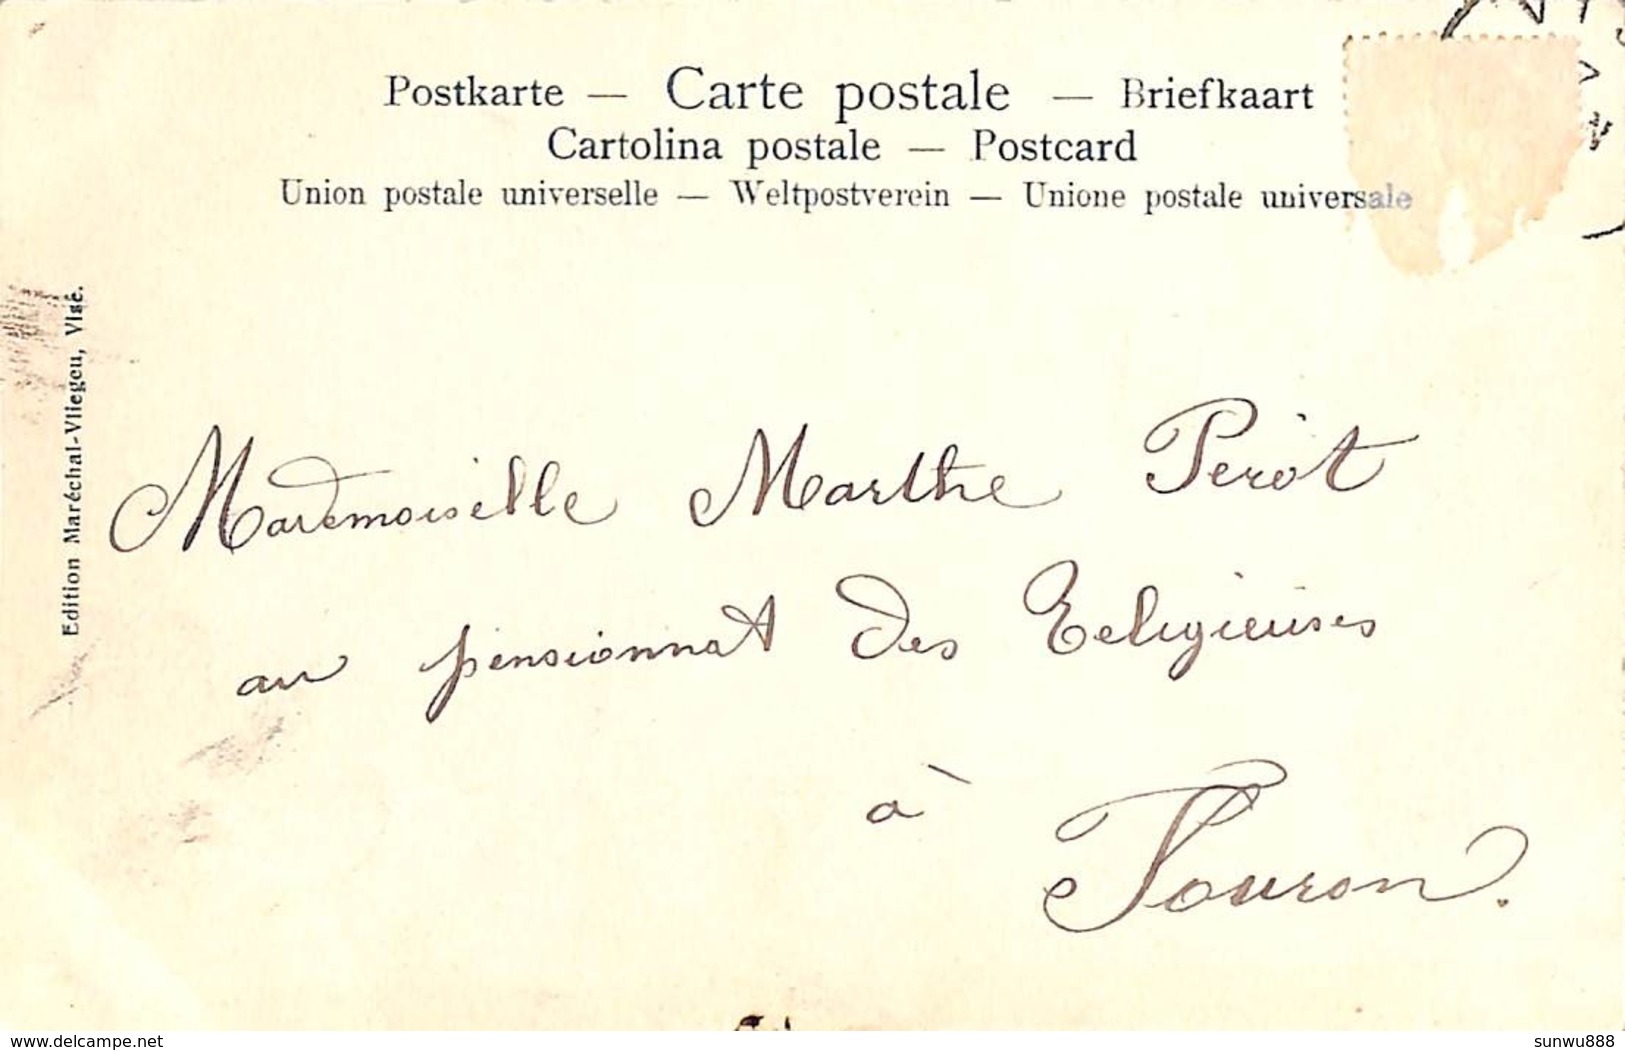 Postkarte — Carte postale — Briefkaart
Cartolina postale — Postcard
Union postale universelle — Weltpostverein — Unione postale universale
Edition Maréchal-Vliegeu, Visé.
Mademoiselle Marthe Perot
au pensionnat des Religieuses
à
Houron.
www.delcampe.net
sunwu888